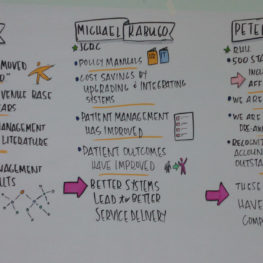 MOVED
VENUE BASE
EARS
ANAGEMENT
LITERATURE
ANAGEMENT
ULTS
MICHAEL KABUCO
JCRC
• POLICY MANUALS
• COST SAVINGS BY
UPGRADING & INTEGRATING
SYSTEMS
• PATIENT MANAGEMENT
HAS IMPROVED
• PATIENT OUTCOMES
HAVE IMPROVED
BETTER SYSTEMS
LEAD TO BETTER
SERVICE DELIVERY
PETE
• 500 STA
INCL
AFF
• WE ARE
• WE ARE
• RECOGNI
ACCOUN
OUTSTA
THESE
HAVE
COMP